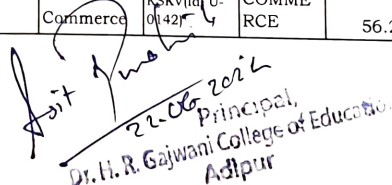 Commerce KSKV(Id) U-0142) COMME
RCE 56.2
22-06-2024
Principal,
Dr. H. R. Gajwani College of Educatio
Adipur